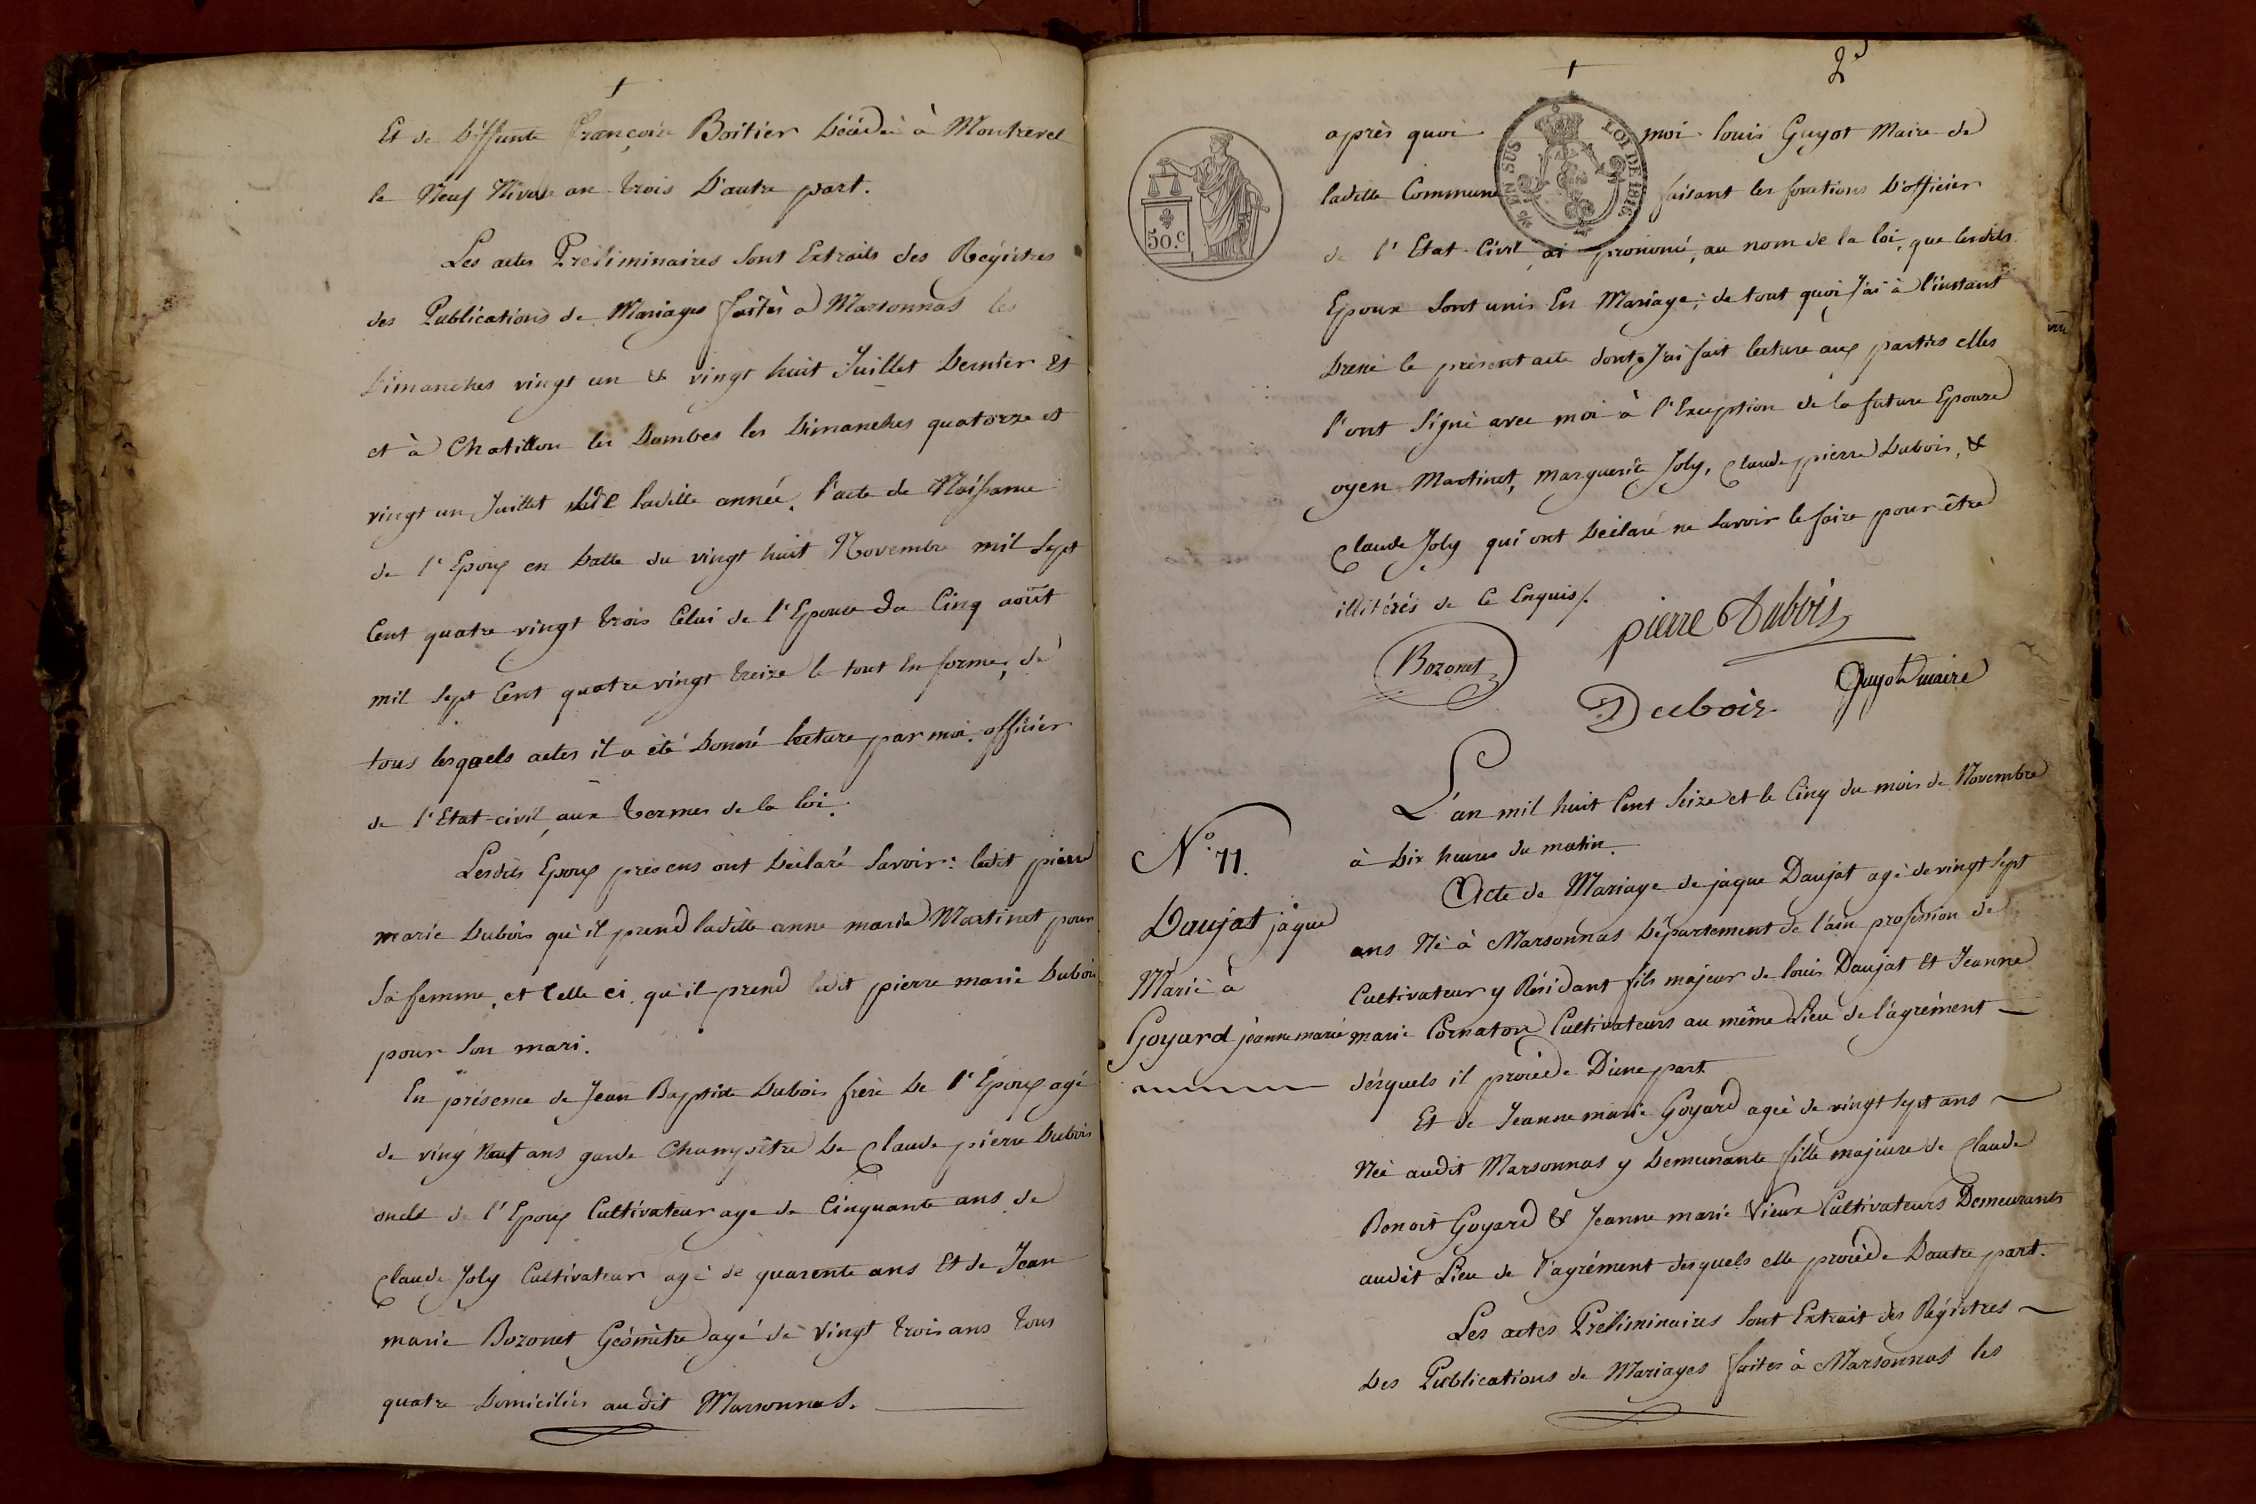 Et de Déffunte françoise Boitier Décédée à Montrevel
le Neuf Nivose an trois D'autre part.
Les actes Préliminaires Sont Extraits des Régistres
des Publications de Mariages faites a Marsonnas les
Dimanches vingt un & vingt huit Juillet Dernier Et
et à Chatillon les Dombes les Dimanches quatorze et
vingt un Juillet de Ladite année, l'acte de Naissance
de l'Epoux en Datte du vingt huit Novembre mil Sept
Cent quatre vingt trois Celui de l'Epouse du Cinq août
mil Sept Cent quatre vingt treize le tout en forme, de
tous lesquels actes il a été Donné lecture par moi officier
de l'Etat-civil, aux termes de la loi.
Lesdits Epoux présens ont Déclaré Savoir : ledit pierre
marie Dubois qu'il prend ladite anne marie Martinet pour
Sa femme, et Celle ci qu'il prend ledit pierre marie Dubois
pour Son mari.
En présence de Jean Baptiste Dubois frère De l'Epoux agé
de ving Neuf ans garde Champêtre De Claude pierre Dubois
oncle de l'Epoux Cultivateur age de Cinquante ans de
Claude Joly Cultivateur agé de quarente ans Et de Jean
marie Bozonet Géomètre agé de Vingt trois ans tous
quatre Domiciliés au dit Marsonnas.
2e
50.c
EN SUS
LOI DE 1816
après quoi moi louis Guyot Maire de
ladite Commune faisant les fonctions D'officier
de l'Etat-Civil, ai prononcé, au nom de la loi, que lesdits
Epoux Sont unis En Mariage ; de tout quoi J'ai à l'instant
Dressé le présent acte dont J'ai fait lecture aux parties elles
l'ont Signé avec moi à l'Exception de la future Epouse
oyen Martinet, Marguerite Joly, Claude pierre Dubois, &
Claude Joly qui ont Déclaré ne Savoir le faire pour être
illitérés de Ce Enquis/.
pierre Dubois
Bozonet
Guyot maire
Dubois
L'an mil huit Cent Seize et le Cinq du mois de Novembre
à Dix heures du matin.
N.° 11.
Daujat jaque
Marié à
Goyard jeanne marie
Acte de Mariage de jaque Daujat agé de vingt Sept
ans Né à Marsonnas Département de l'ain profession de
Cultivateur y Résidant fils majeur de louis Daujat Et Jeanne
marie Cornaton Cultivateurs au même Lieu de l'agrément
desquels il procède D'une part
Et de Jeanne marie Goyard ageé de vingt Sept ans
Née audit Marsonnas y Demeurante fille majeure de Claude
Benoit Goyard & Jeanne marie Vieux Cultivateurs Demeurants
audit Lieu de l'agrément desquels elle procède Dautre part.
Les actes Préliminaires Sont Extrait des Régistres
Des Publications de Mariages faites à Marsonnas les